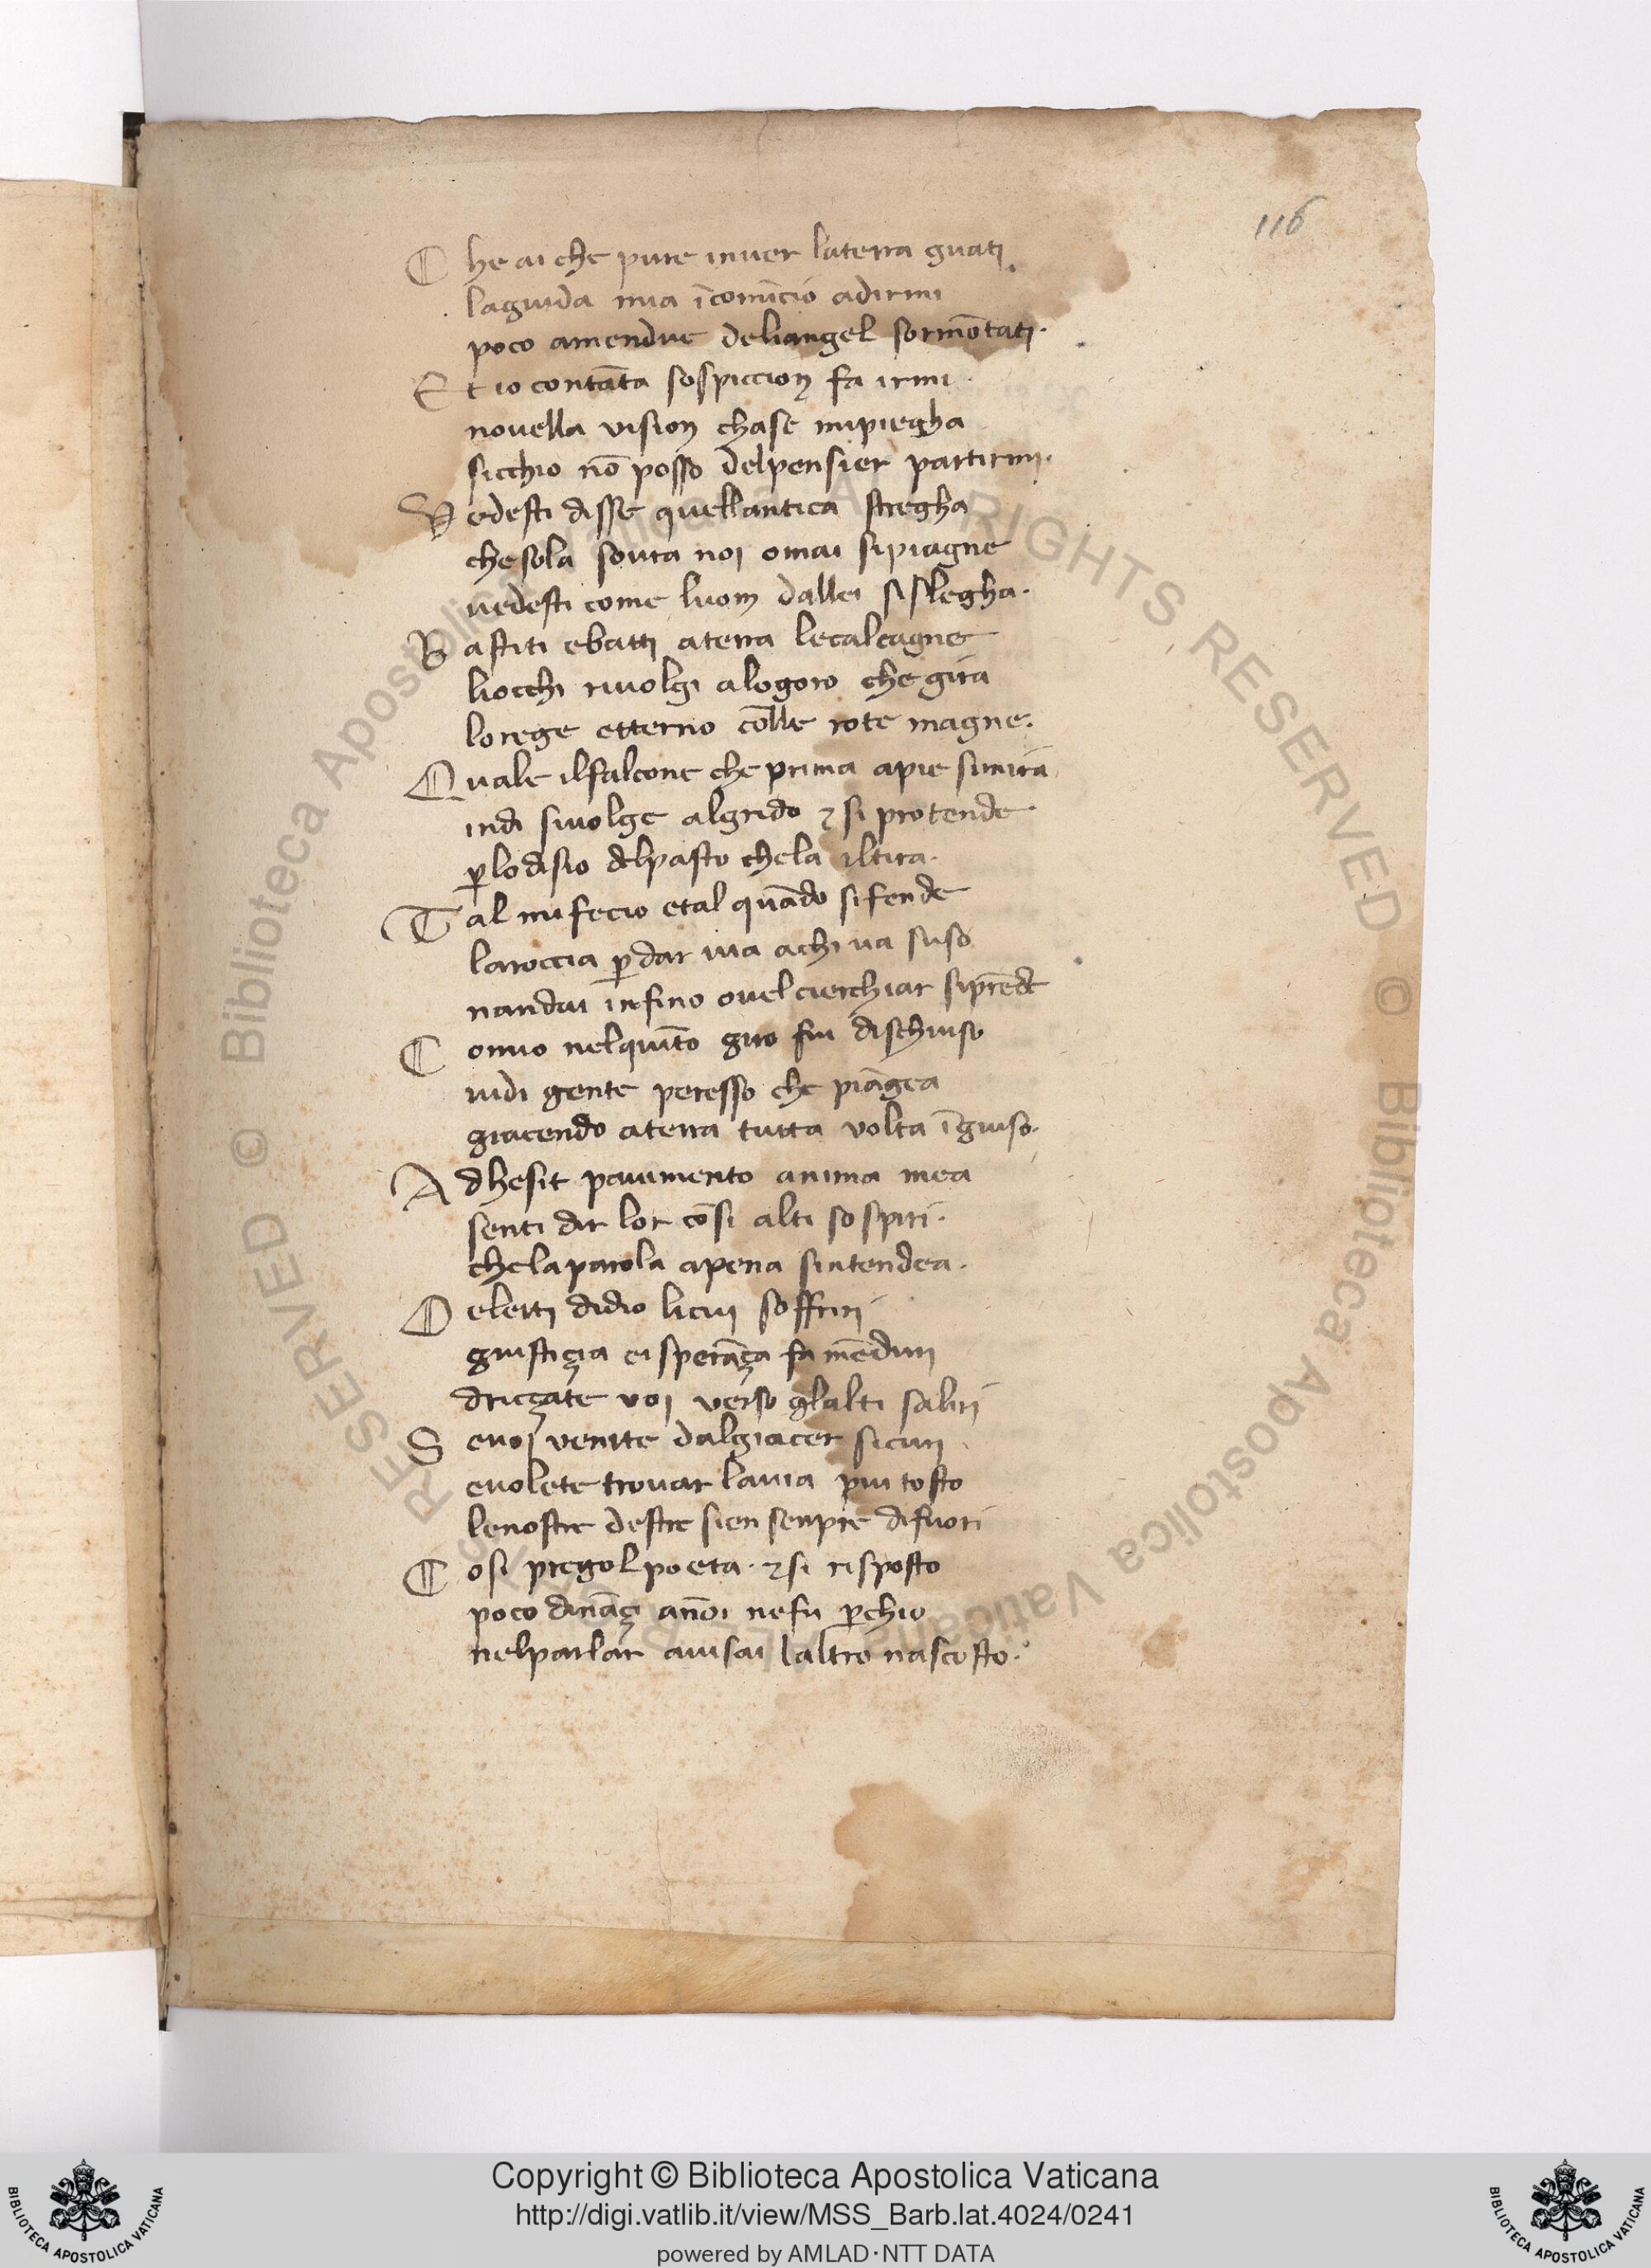 116
C he ai che pure inuer laterra guati
laguida mia īcomīcio adirmi
poco amendue deliangel sormōtati.
E t io contāta sospiccion fa irmi
nouella vision chase mipiegha
sicchio nō posso delpensier partirmi.
V edesti disse quellantica stregha
chesola soura noi omai sipiagne
uedesti come luom dallei sislegha.
B astiti ebatti aterra lecalcagne
liocchi riuolgi alogoro chegira
lorege etterno cōlle rote magne.
Q uale ilfalcone che prima apie simira
indi siuolge algrido ⁊ si protende
ꝑlodisio delpasto chela iltira.
T al mifecio etal quādo sifende
laroccia ꝑdar uia achi ua suso
nandai infino ouel cierchiar siprēde
C omio nelquīto giro fui dischiuso
uidi gente peresso che piāgea
giacendo aterra tutta volta īgiuso.
A dhesit pauimento anima mea
senti dir lor cōsi alti sospiri.
chelaparola apena sintendea.
O eletti didio licui soffriri
giustiçia ei sperāça fa mēduri
driçate voi verso glalti saliri
S euoi venite dalgiacer sicuri
euolete trouar lauia piu tosto
lenostre destre sien senpre difuori
C osi pregol poeta. ⁊ si risposto
poco dināçi anōi nefu ꝑchio
nelparlar auisai laltro nascosto.
RESERVED © Biblioteca Apostolica Vaticana ALL RIGHTS RESERVED © Biblioteca Apostolica Vaticana
Copyright © Biblioteca Apostolica Vaticana
http://digi.vatlib.it/view/MSS_Barb.lat.4024/0241
powered by AMLAD·NTT DATA
BIBLIOTECA APOSTOLICA VATICANA
BIBLIOTECA APOSTOLICA VATICANA